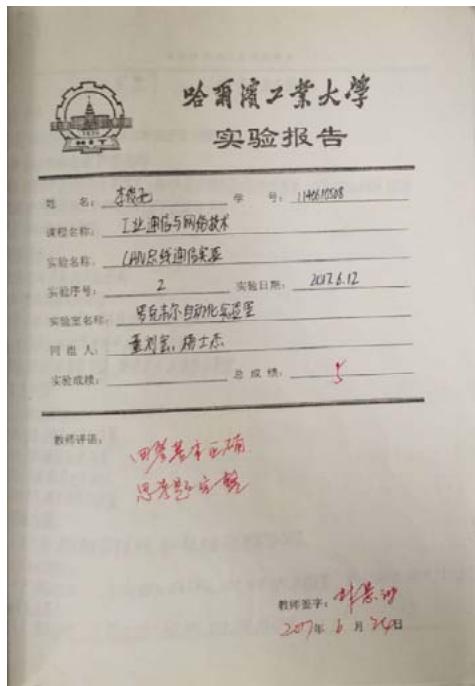 HIT
哈爾濱工業大學
实验报告
姓 名： 学 号：
课程名称： 工业通信与网络技术
实验名称： CAN总线通信实验
实验序号： 2 实验日期： 2017.6.12
实验室名称： 罗克韦尔自动化实验室
同组人：
实验成绩： 总成绩： 5
教师评语：
回答基本正确
思考题完整
教师签字：
2017年 6 月 24日